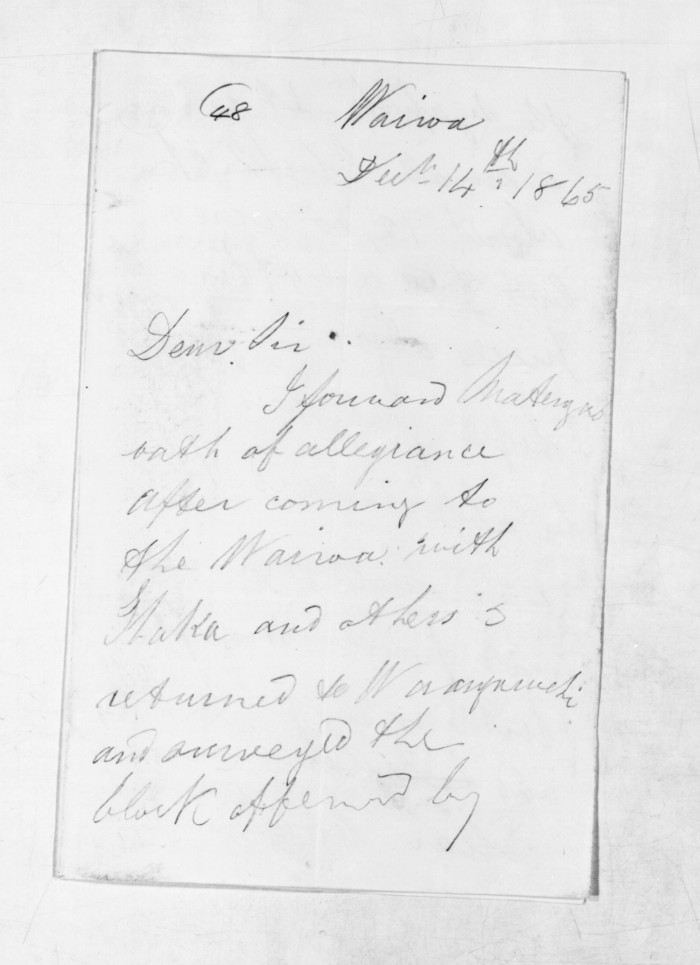 48
Wairoa
Decr 14th 1865
Dear Sir
I forward
oath of allegiance
after coming to
the Wairoa with
Ihaka and others I
returned to
and surveyed the
block offered by